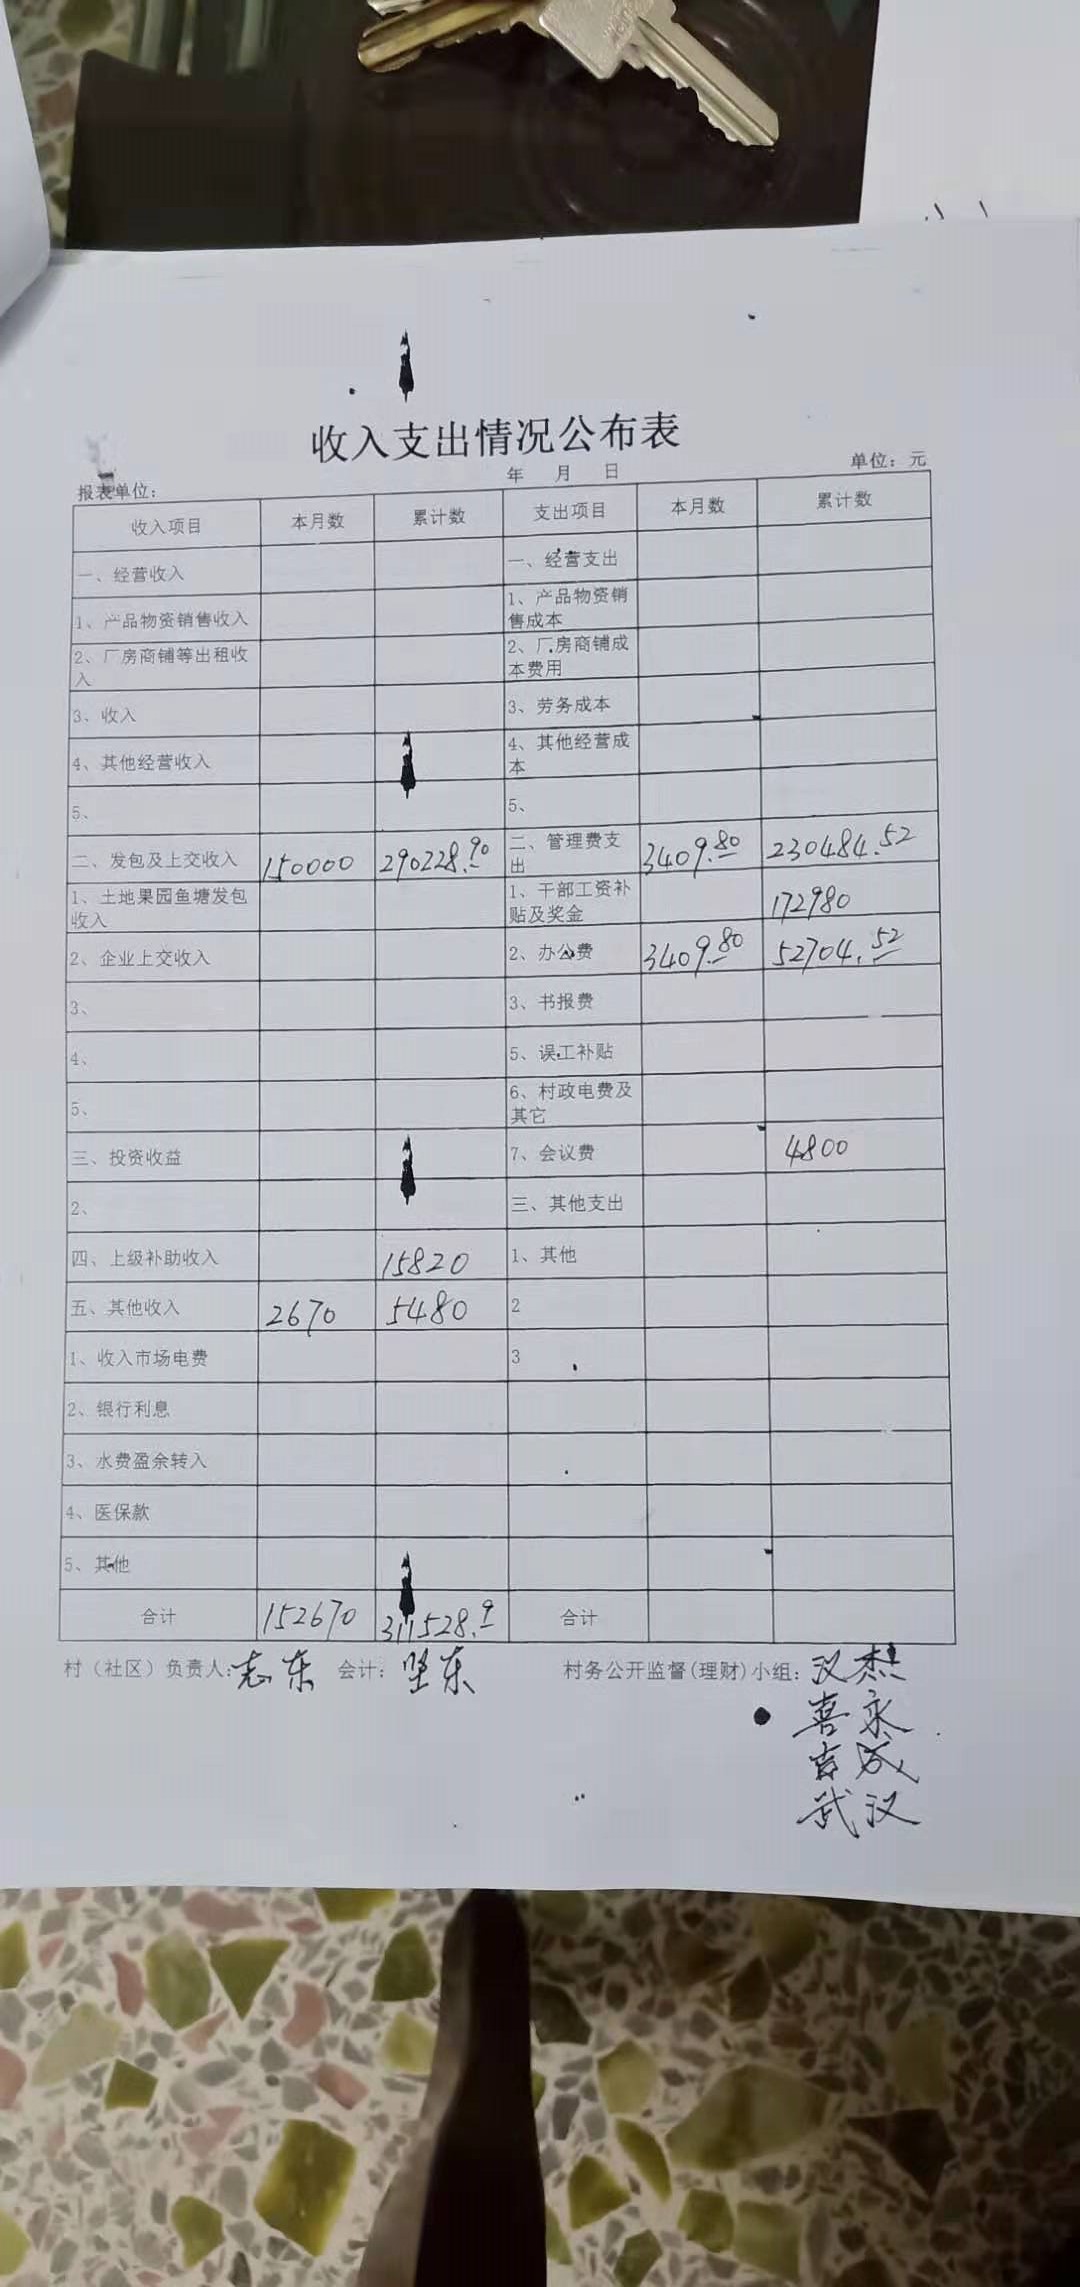 收入支出情况公布表
年 月 日
报表单位： 单位：元
收入项目 本月数 累计数 支出项目 本月数 累计数
一、经营收入 一、经营支出
1、产品物资销售收入 1、产品物资销售成本
2、厂房商铺等出租收入 2、厂房商铺成本费用
3、收入 3、劳务成本
4、其他经营收入 4、其他经营成本
5、 5、
二、发包及上交收入 150000 290228.90 二、管理费支出 3409.80 230484.52
1、土地果园鱼塘发包收入 1、干部工资补贴及奖金 172980
2、企业上交收入 2、办公费 3409.80 52704.52
3、 3、书报费
4、 5、误工补贴
5、 6、村政电费及其它
三、投资收益 7、会议费 4800
2、 三、其他支出
四、上级补助收入 15820 1、其他
五、其他收入 2670 5480 2
1、收入市场电费 3
2、银行利息
3、水费盈余转入
4、医保款
5、其他
合计 152670 311528.9 合计
村（社区）负责人：志东 会计：坚东 村务公开监督(理财)小组：汉杰
喜永
吉成
武汉